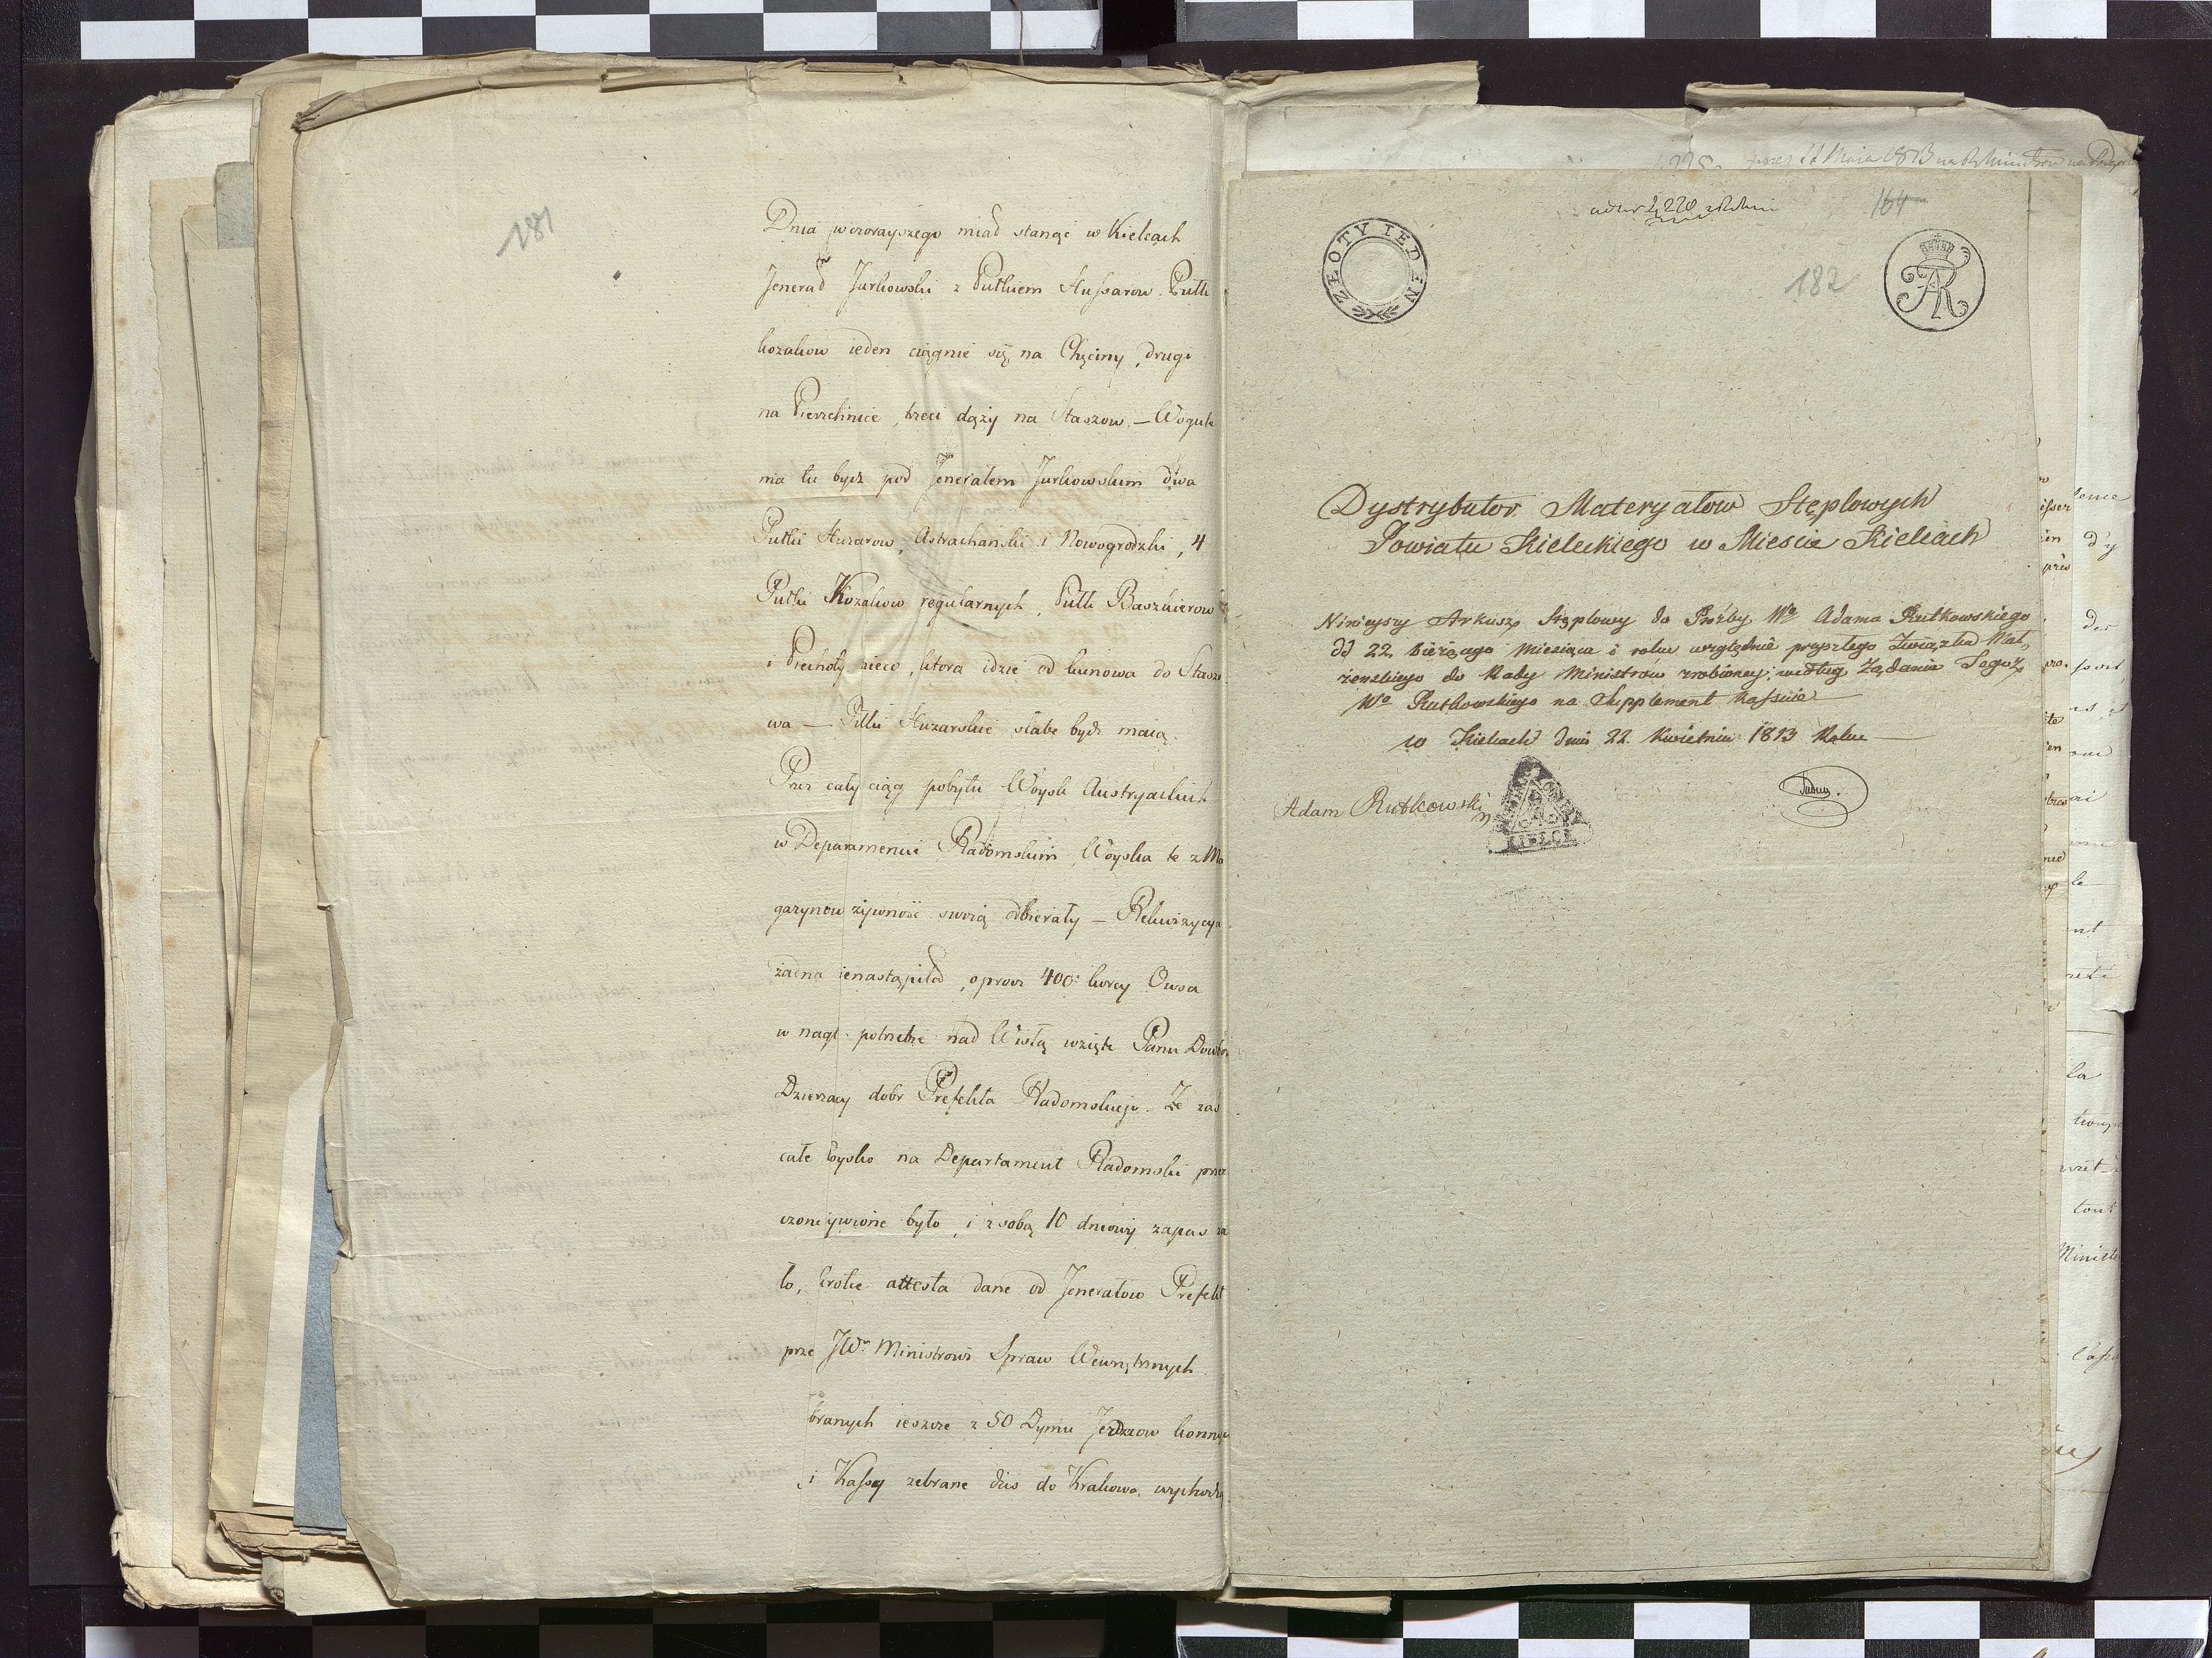 181
Dnia wczorayszego miał stanąć w Kielcach
Jenerał Jurkowski z Pułkiem Hussarow. Pułk
kozakow ieden ciągnie się na Chęciny, drugi
na Pierzchnice, trzeci dąży na Staszow. — Wogule
ma tu bydz pod Jenerałem Jurkowskim dwa
Pułki Huzarow, Astrachański i Nowogrodzki, 4
Pułki Kozakow regularnych, Pułk Baszkierow
i Piechoty nieco, ktora idzie od kunowa do Staszo
wa — Półki Huzarskie słabe bydź maią.
Przez cały ciąg pobytu Woysk Austryackich
w Departamencie Radomskim, Woyska te z Ma
gazynow żywność swoią odbierały — Rekwizycya
żadna nienastąpiła, oprocz 400 korcy Owsa
w nagł. potrzebie nad Wisłą wzięte Panu
Dzierzawcy dobr Prefekta Radomskiego. Ze zaś
całe woysko na Departament Radomski prze
było, i z sobą 10 dniowy zapas
ło, attesta dane od Jenerałow Prefekt
prze JWu Ministrowi Spraw Wewnętrznych.
branych ieszcze z 50 Dymu Jezdzcow konnych
i Kassy zebrane dziś do Krakowa wychodzą.
4228
ad Nr 4,220
164
182
ZŁOTY IEDEN
FAR
Dystrybutor Materyałow Stęplowych
Powiatu Kieleckiego w Miescie Kielcach
Ninieyszy Arkusz Stęplowy do Proźby Wo Adama Rutkowskiego
dd 22 bieżącego Miesiąca i roku względnie przyszłego Związku Mał,
żenskiego do Rady Ministrow zrobioney, według Żądania Tegoż
Wo Rutkowskiego na Supplement kassuie
w Kielcach dnia 22. Kwietnia 1813 Roku
Adam Rutkowski